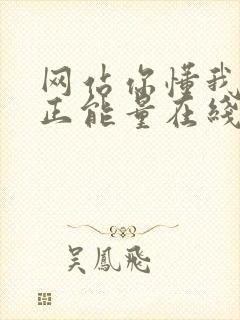 网佔你懂我
正能量在綫
吴鳳飛